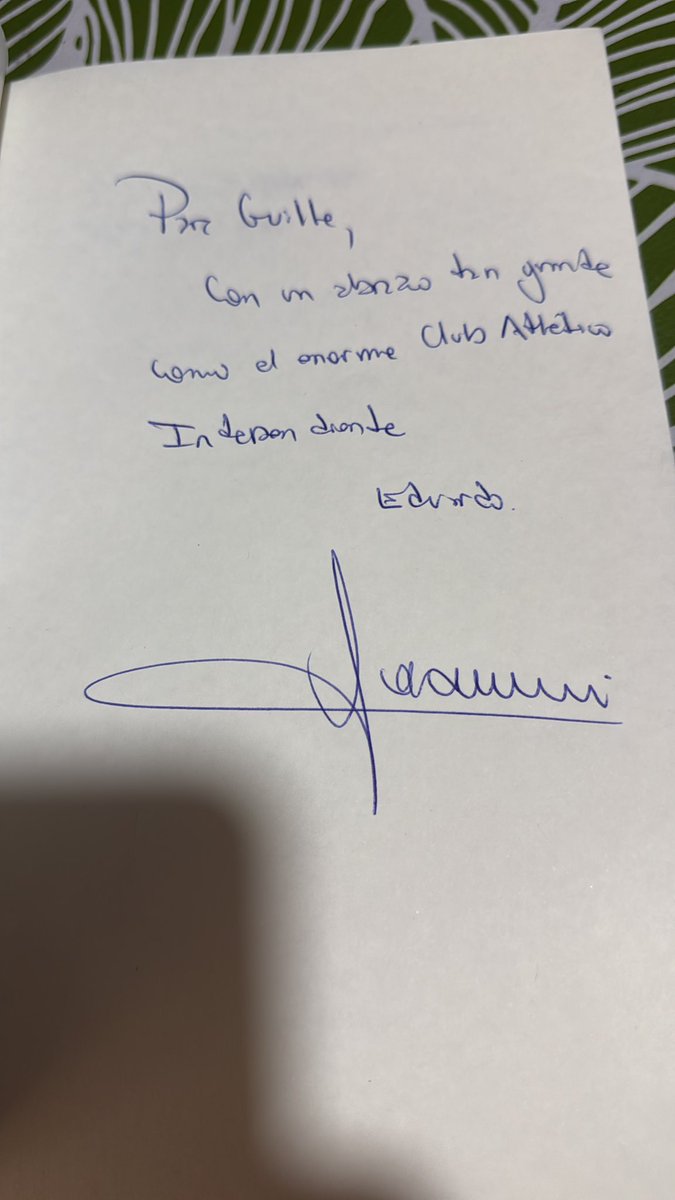 Para Guille,
Con un abrazo tan grande
como el enorme Club Atlético
Independiente
Eduardo.